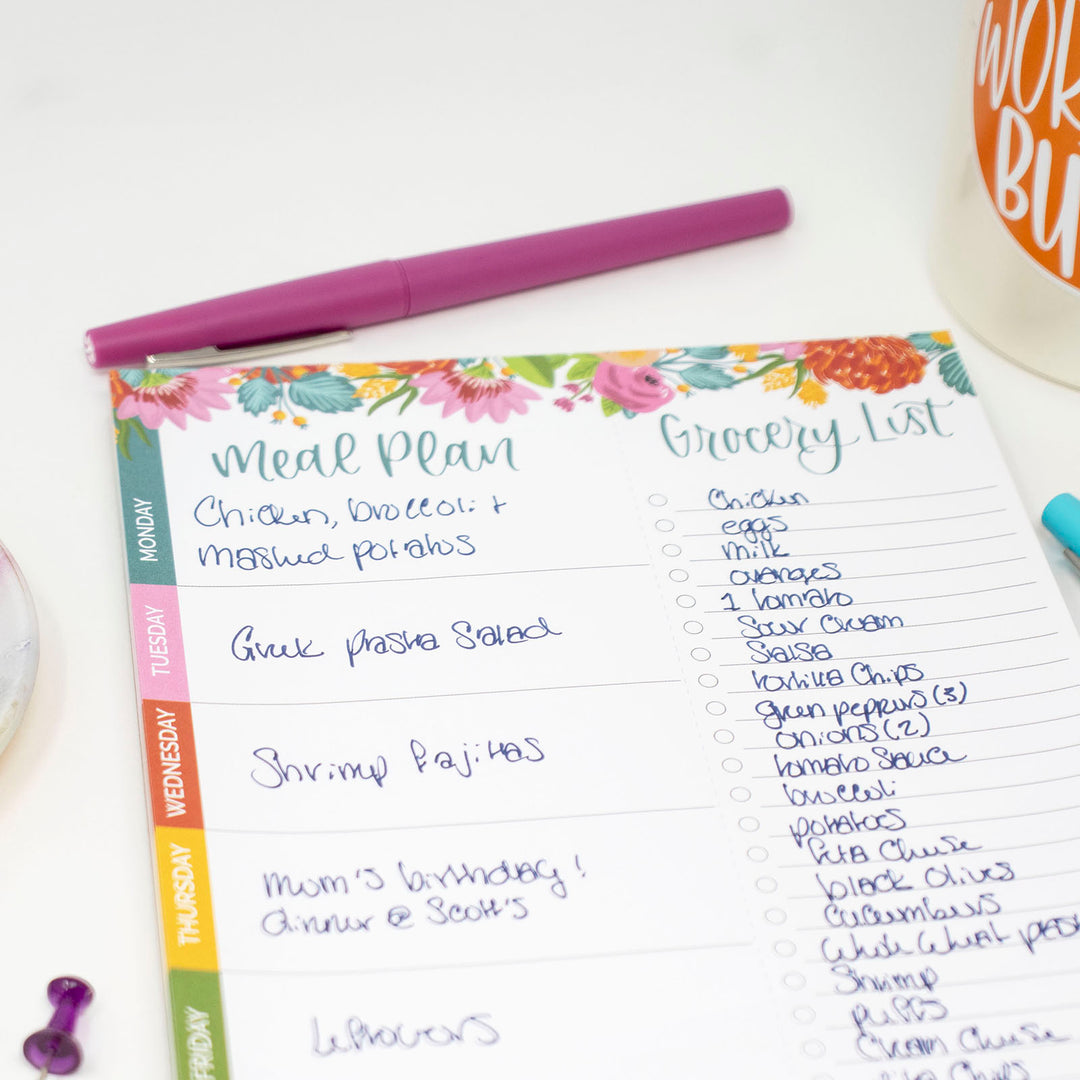 WOR
BU
Meal Plan
MONDAY
Chicken, broccoli +
mashed potatos
TUESDAY
Greek pasta Salad
WEDNESDAY
Shrimp fajitas
THURSDAY
Mom's birthday!
dinner @ Scott's
FRIDAY
leftovers
Grocery List
Chicken
eggs
milk
oranges
1 tomato
Sour Cream
Salsa
tortilla Chips
green peppers (3)
onions (2)
tomato Sauce
broccoli
potatoes
feta Cheese
black olives
Cucumbers
Whole Wheat pasta
Shrimp
puffs
Cream Cheese
Chips